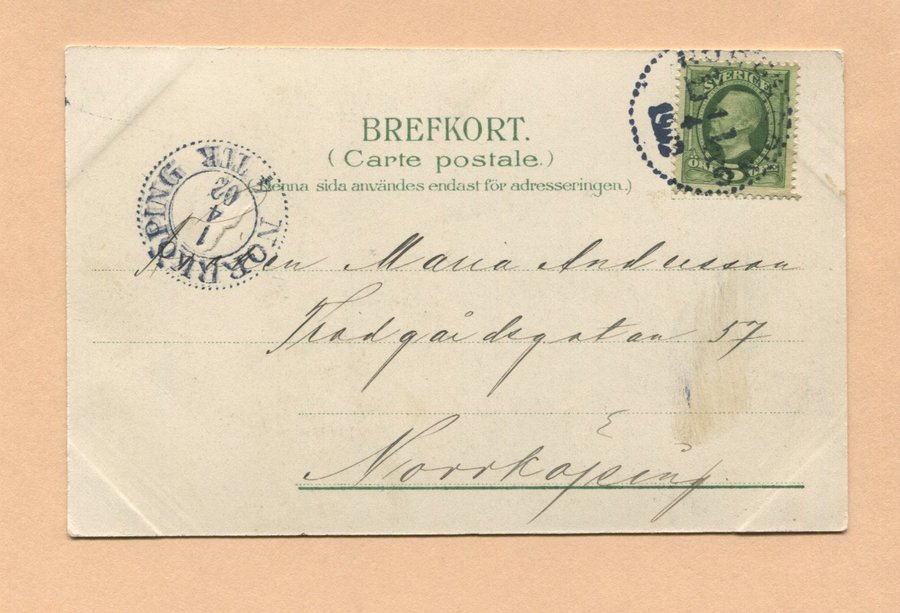 BREFKORT.
(Carte postale.)
(Denna sida användes endast för adresseringen.)
SVERIGE
5
ÖRE
1902
NORRKÖPING
TUR
1
4
02
Maria Andersson
Trädgårdsgatan 57
Norrköping